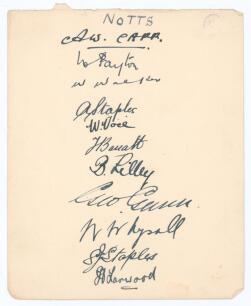 NOTTS
A.W. CARR.
W Payton
W Walker
A Staples
W. Voce
F Barratt
B. Lilley
Geo. Gunn.
W W Whysall
S J Staples
H Larwood